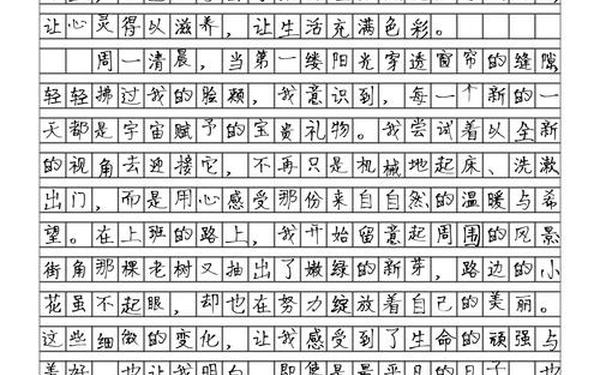 让心灵得以滋养，让生活充满色彩。
周一清晨，当第一缕阳光穿透窗帘的缝隙
轻轻拂过我的脸颊，我意识到，每一个新的一
天都是宇宙赋予的宝贵礼物。我尝试着以全新
的视角去迎接它，不再只是机械地起床、洗漱
出门，而是用心感受那份来自自然的温暖与希
望。在上班的路上，我开始留意起周围的风景
街角那棵老树又抽出了嫩绿的新芽，路边的小
花虽不起眼，却也在努力绽放着自己的美丽。
这些细微的变化，让我感受到了生命的顽强与
美好，也让我明白，即使是最平凡的日子，也